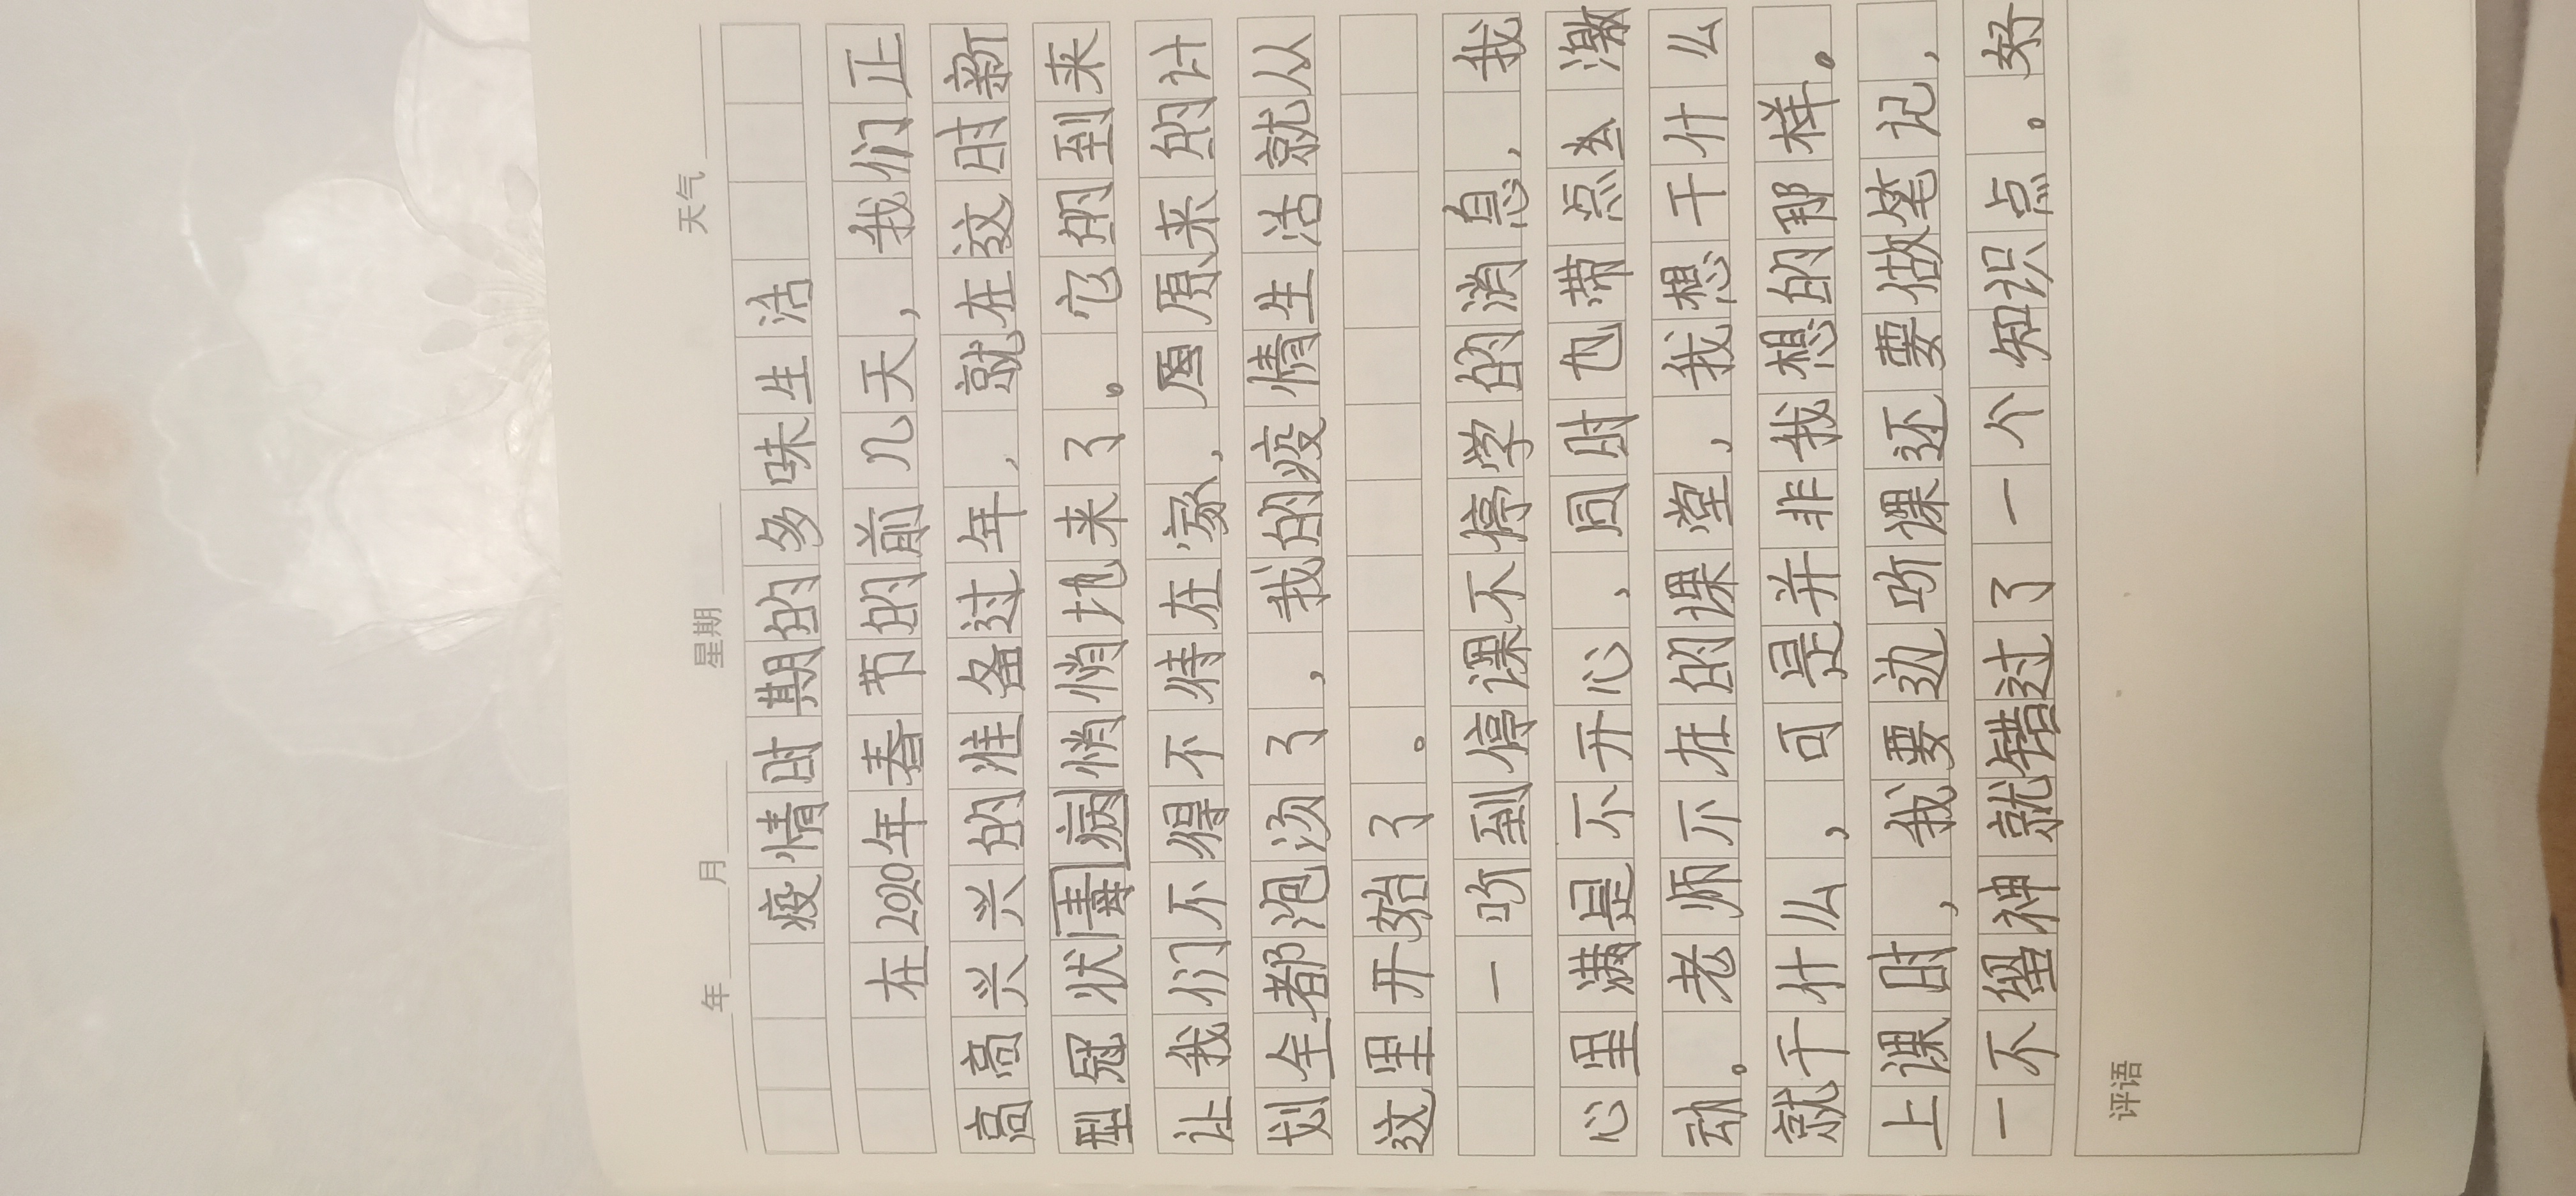 年 月 星期 天气
疫情时期的多味生活
在2020年春节的前几天，我们正
高高兴兴的准备过年，就在这时新
型冠状毒病悄悄地来了。它的到来
让我们不得不待在家，原来的计
划全都泡汤了，我的疫情生活就从
这里开始了。
一听到停课不停学的消息，我
心里满是不开心，同时也带点激
动。老师不在的课堂，我想干什么
就干什么，可是并非我想的那样。
上课时，我要边听课还要做笔记，
一不留神就错过了一个知识点。好
评语